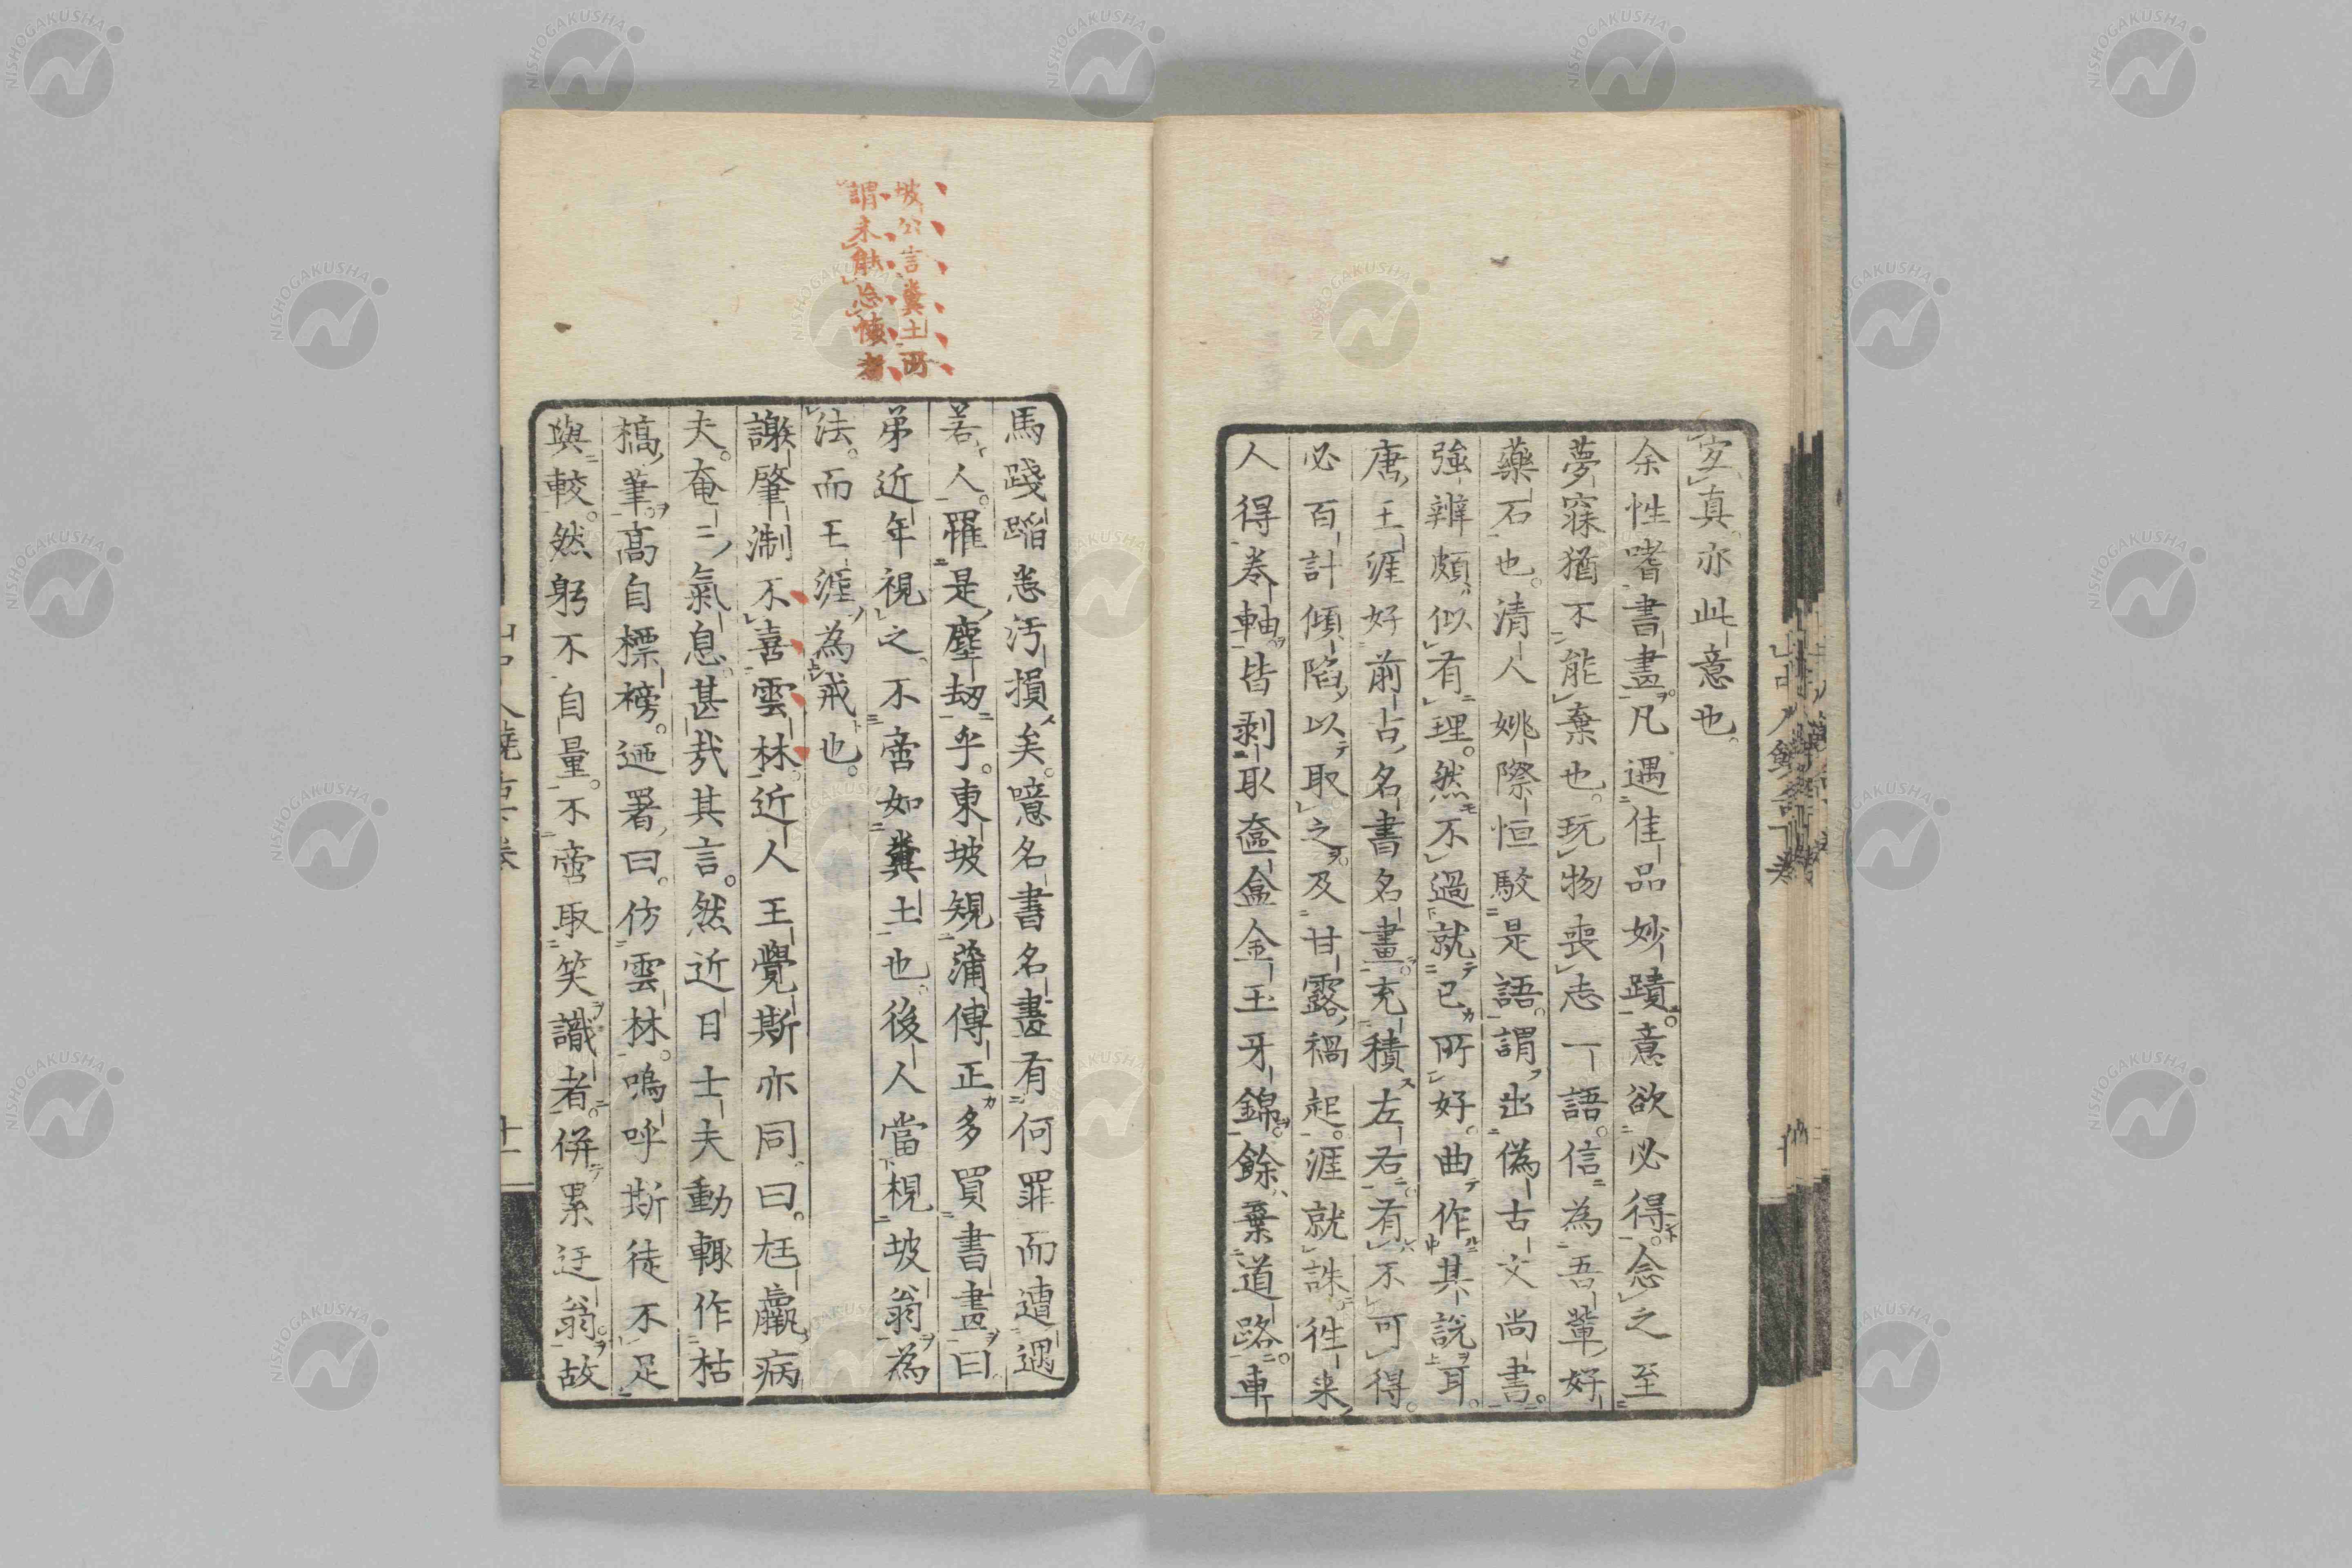 宲真亦此意也。
余性嗜書畫。凡遇佳品妙蹟。意欲必得。念之至
夢寐猶不能棄也。玩物喪志一語。信為吾輩好
藥石也。清人姚際恒駁是語。謂出偽古文尚書。
強辨頗似有理。然不過就已所好。曲作其說耳。
唐王涯好前古名書名畫。充積左右。有不可得。
必百計傾陷以取之。及甘露禍起。涯就誅。徃来
人得卷軸。皆剥取奩盒金玉牙錦。餘棄道路。車
馬踐蹈恚汚損矣。噫名書名畫有何罪而遭遇
若人。罹是塵劫乎。東坡規蒲傳正多買書畫曰
弟近年視之。不啻如糞土也。後人當視坡翁為
法。而王涯為戒也。
謝肇淛不喜雲林。近人王覺斯亦同。曰。尫羸病
夫。奄二氣息。甚哉其言。然近日士夫動輒作枯
槁筆。高自標榜。迺署曰。仿雲林。嗚呼斯徒不足
與較。然躬不自量。不啻取笑識者。併累迂翁。故
坡公言糞土所
謂未能忘懐者
山中人饒舌下卷
十一
NISHOGAKUSHA